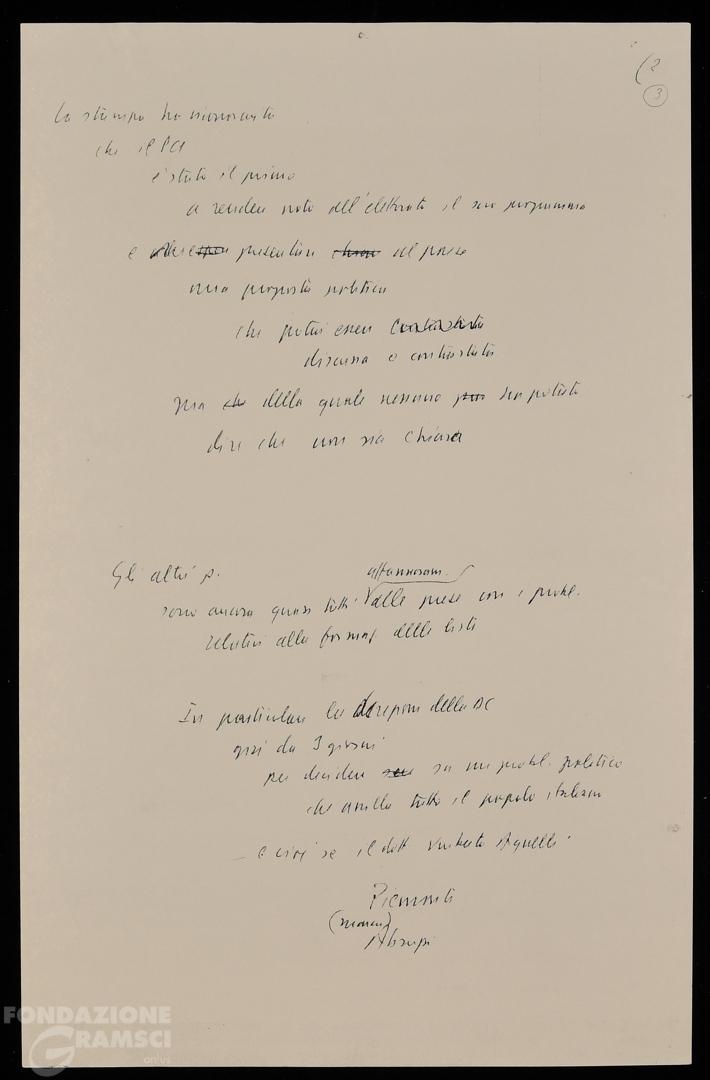 (2
3
La stampa ha riconosciuto
che il PCI
è stato il primo
a rendere noto all'elettorato il suo programma
e presentare al paese
una proposta politica
che potrà essere contrastata
discussa o contrastata
Ma che della quale nessuno può ha potuto
dire che non sia chiara
Gli altri p.
affannosam.
sono ancora quasi tutti alle prese con i probl.
relativi alla formaz delle liste
In particolare la direzione della DC
già da 3 giorni
per decidere su un probl. politico
che assilla tutto il popolo italiano
— e cioè se il dott Umberto Agnelli
Piemonte
Abruzzi
FONDAZIONE
GRAMSCI
onlus